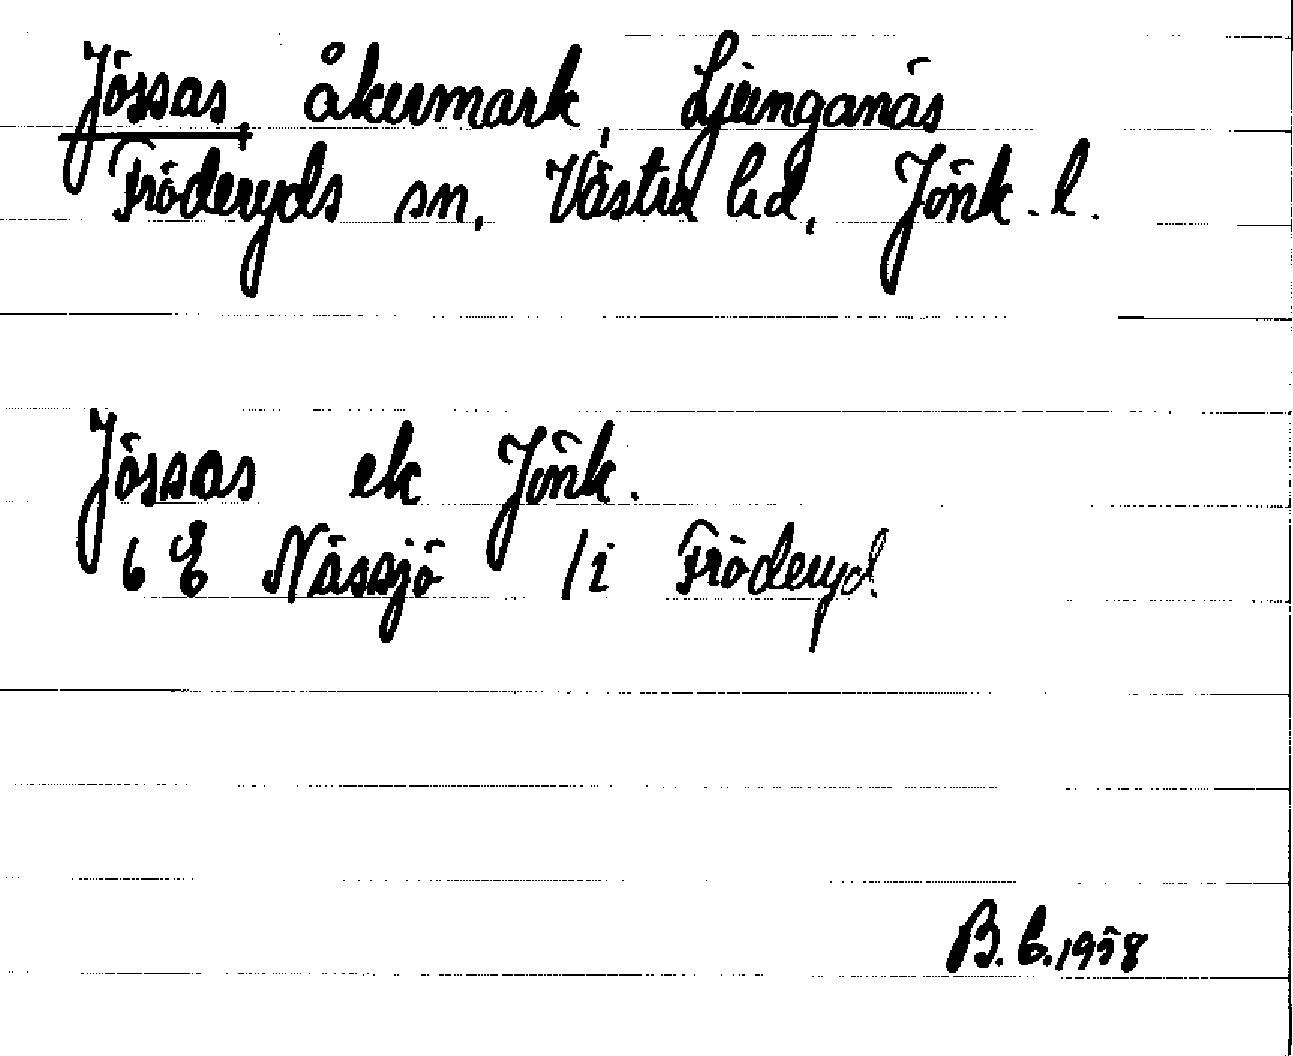 Jössas, åkermark, Ljunganäs
Fröderyds sn, Västra hd, Jönk. l.
Jössas ek Jönk.
6 E Nässjö /i Fröderyd.
B. E. 1958